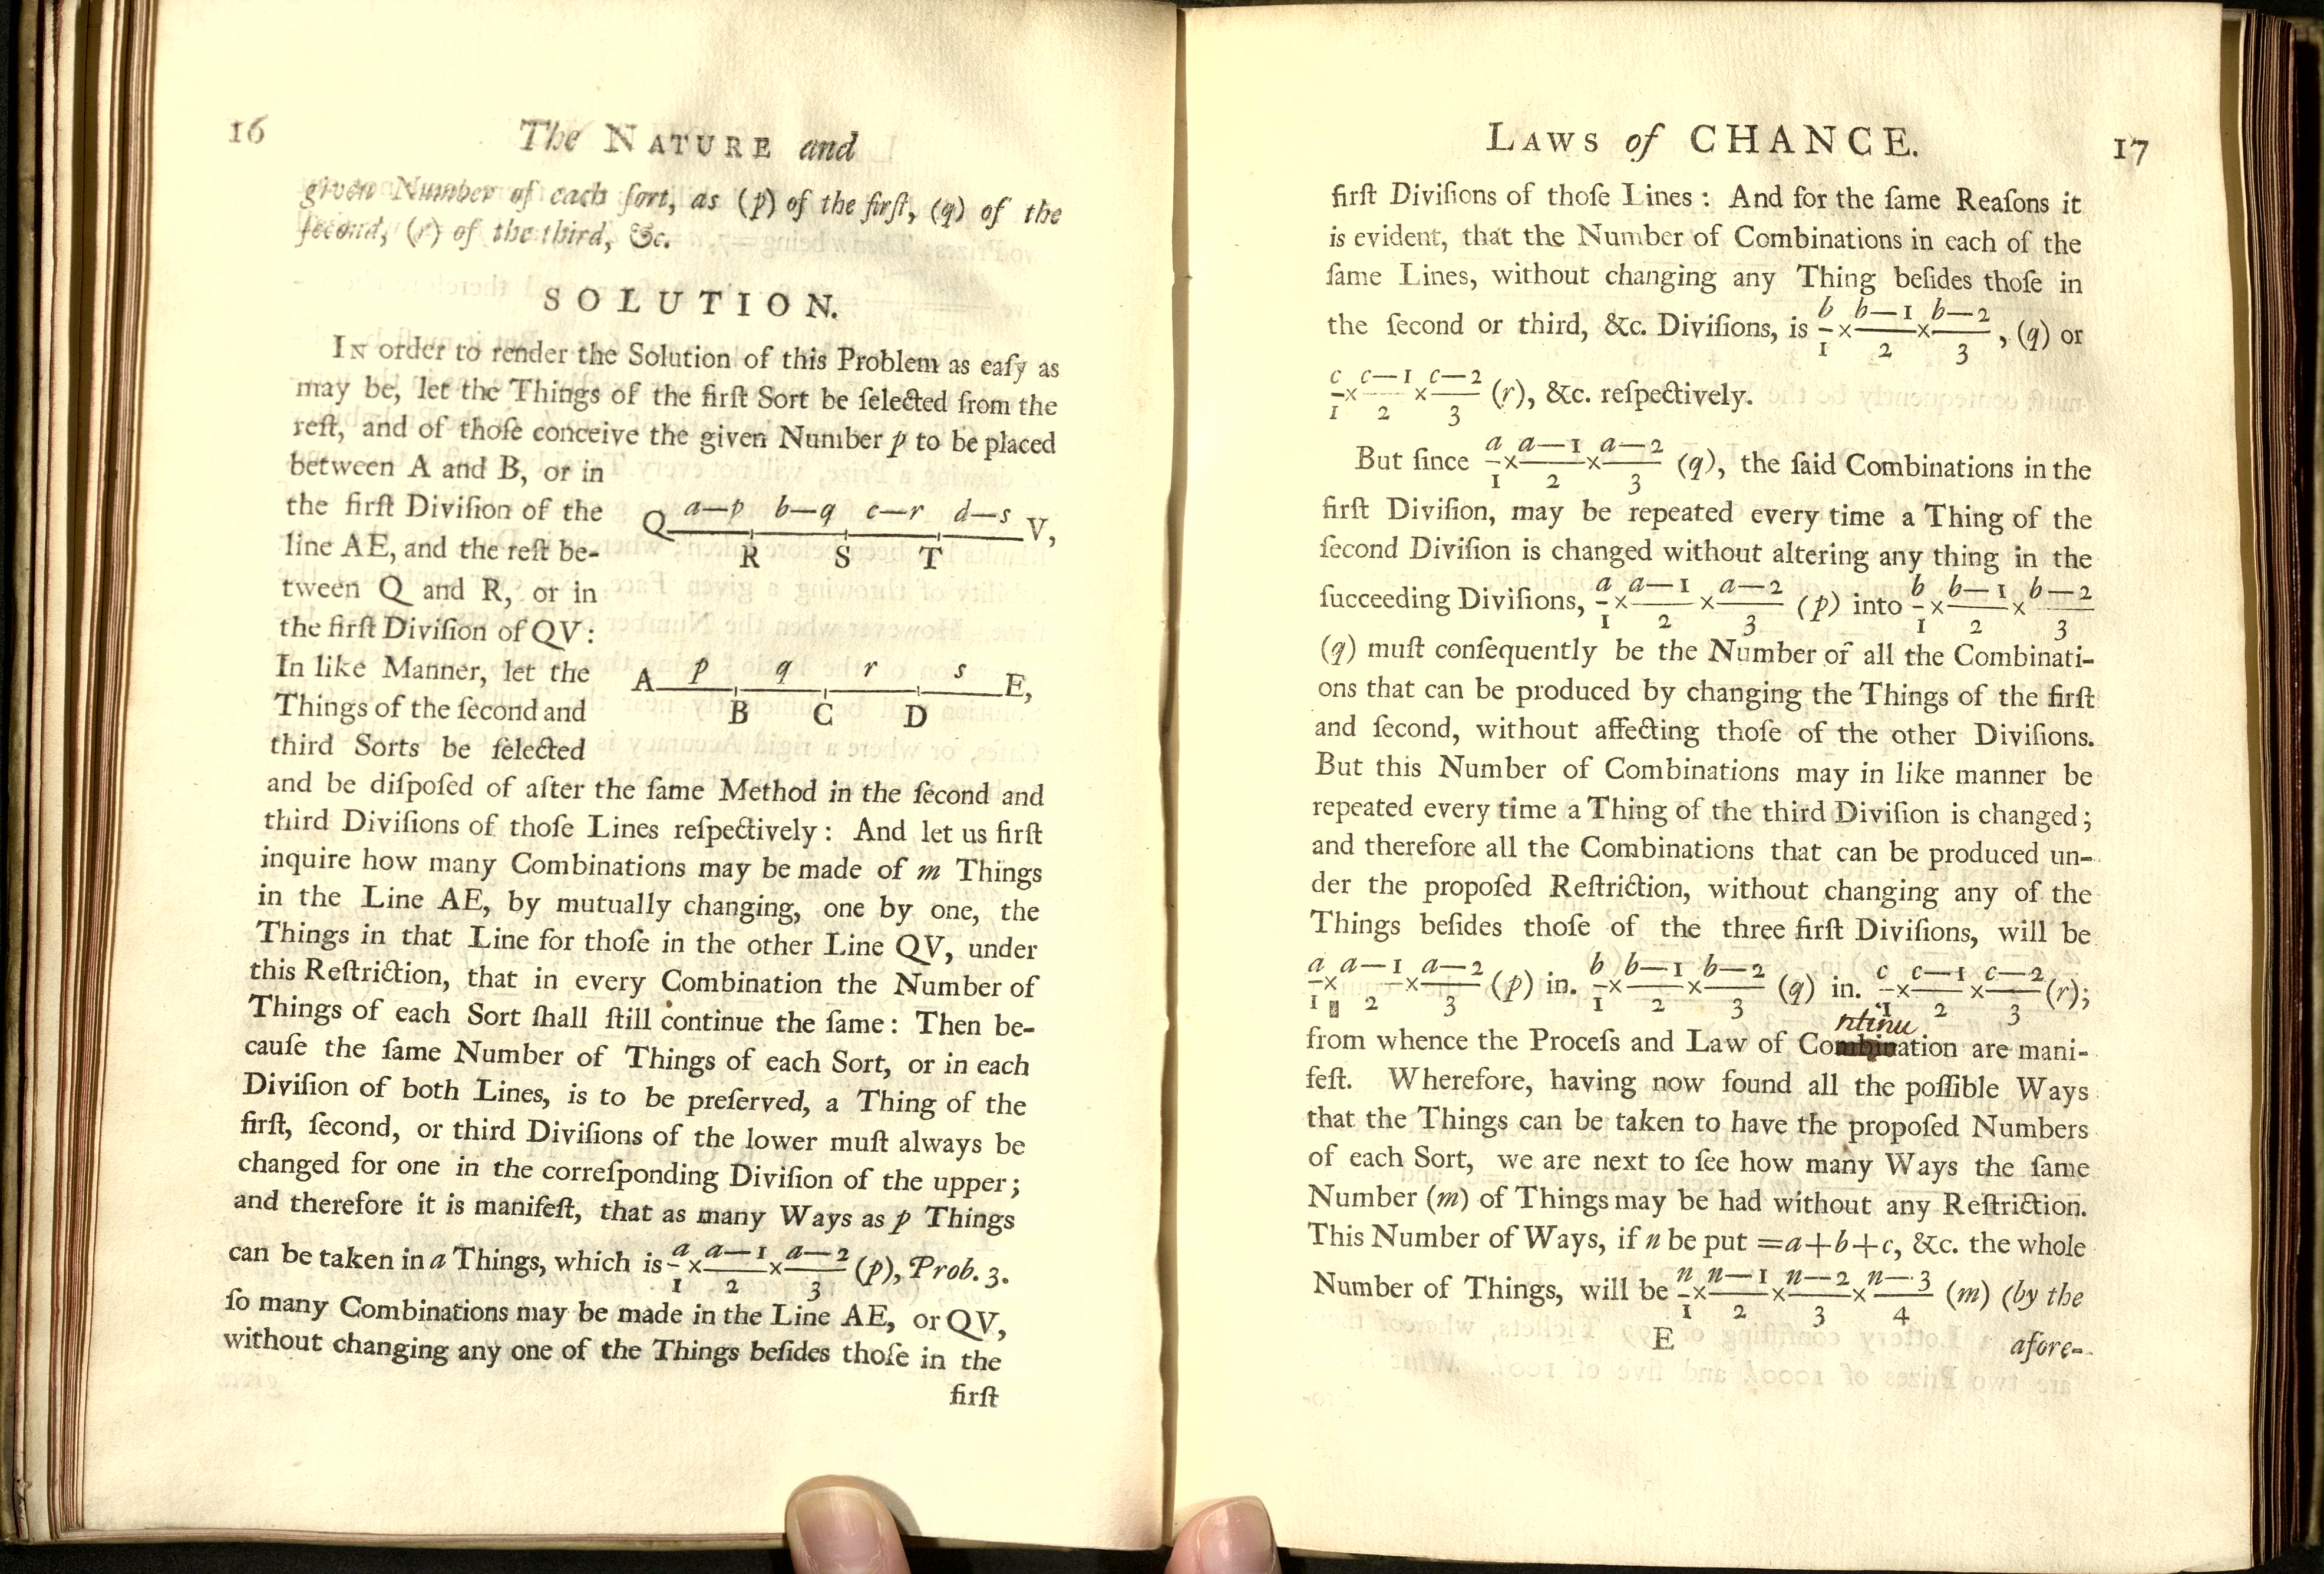 16
The NATURE and
given Number of each ſort, as (p) of the firſt, (q) of the
ſecond, (r) of the third, &c.
SOLUTION.
IN order to render the Solution of this Problem as eaſy as
may be, let the Things of the firſt Sort be ſelected from the
reſt, and of thoſe conceive the given Number p to be placed
between A and B, or in
the firſt Diviſion of the
line AE, and the reſt be-
tween Q and R, or in
the firſt Diviſion of QV:
In like Manner, let the
Things of the ſecond and
third Sorts be ſelected
a—p b—q c—r d—s
Q V,
R S T
p q r s
A E,
B C D
and be diſpoſed of after the ſame Method in the ſecond and
third Diviſions of thoſe Lines reſpectively: And let us firſt
inquire how many Combinations may be made of m Things
in the Line AE, by mutually changing, one by one, the
Things in that Line for thoſe in the other Line QV, under
this Reſtriction, that in every Combination the Number of
Things of each Sort ſhall ſtill continue the ſame: Then be-
cauſe the ſame Number of Things of each Sort, or in each
Diviſion of both Lines, is to be preſerved, a Thing of the
firſt, ſecond, or third Diviſions of the lower muſt always be
changed for one in the correſponding Diviſion of the upper;
and therefore it is manifeſt, that as many Ways as p Things
can be taken in a Things, which is a/1 × a—1/2 × a—2/3 (p), Prob. 3.
ſo many Combinations may be made in the Line AE, or QV,
without changing any one of the Things beſides thoſe in the
firſt
LAWS of CHANCE.
17
firſt Diviſions of thoſe Lines: And for the ſame Reaſons it
is evident, that the Number of Combinations in each of the
ſame Lines, without changing any Thing beſides thoſe in
the ſecond or third, &c. Diviſions, is b/1 × b—1/2 × b—2/3, (q) or
c/1 × c—1/2 × c—2/3 (r), &c. reſpectively.
But ſince a/1 × a—1/2 × a—2/3 (q), the ſaid Combinations in the
firſt Diviſion, may be repeated every time a Thing of the
ſecond Diviſion is changed without altering any thing in the
ſucceeding Diviſions, a/1 × a—1/2 × a—2/3 (p) into b/1 × b—1/2 × b—2/3
(q) muſt conſequently be the Number of all the Combinati-
ons that can be produced by changing the Things of the firſt
and ſecond, without affecting thoſe of the other Diviſions.
But this Number of Combinations may in like manner be
repeated every time a Thing of the third Diviſion is changed;
and therefore all the Combinations that can be produced un-
der the propoſed Reſtriction, without changing any of the
Things beſides thoſe of the three firſt Diviſions, will be
a/1 × a—1/2 × a—2/3 (p) in. b/1 × b—1/2 × b—2/3 (q) in. c/1 × c—1/2 × c—2/3 (r);
ntinu
from whence the Proceſs and Law of Combination are mani-
feſt. Wherefore, having now found all the poſſible Ways
that the Things can be taken to have the propoſed Numbers
of each Sort, we are next to ſee how many Ways the ſame
Number (m) of Things may be had without any Reſtriction.
This Number of Ways, if n be put =a+b+c, &c. the whole
Number of Things, will be n/1 × n—1/2 × n—2/3 × n—3/4 (m) (by the
E
afore-